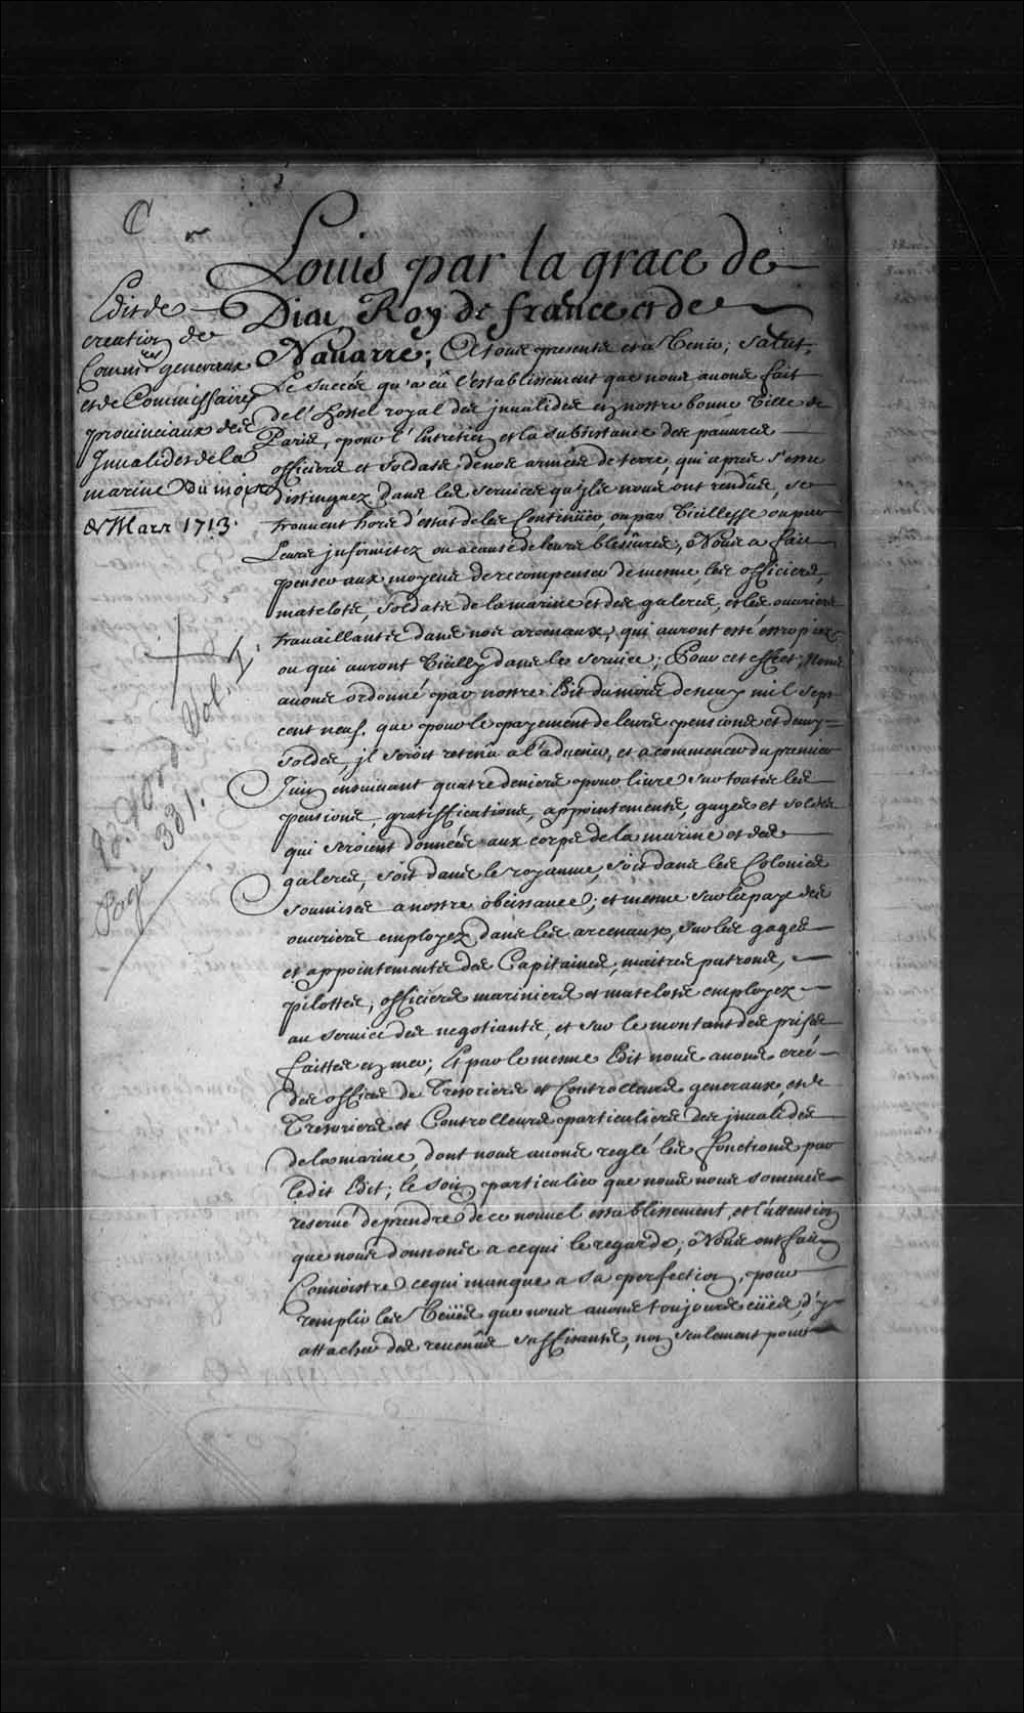 C
Edit de
creation de
Commres generaux
et de Commissaires
provinciaux des
Invalides de la
marine Du mois
de Mars 1713.
Ed. Vol. I.
Page 381.
Louis par la grace de
Dieu Roy de france et de
Nauarre; A tous presents et a Venir; Salut,
Le Succés qu'a eû l'establissement que nous auons fait
de l'Hostel royal des jnualides en nostre bonne Ville de
Paris, pour l'Entretien et la Subsistance des pauures
officiers et Soldats de nos armées de terre, qui apres s'estre
distinguez dans les Seruices qu'ils nous ont rendûs, se
trouuent hors d'estat de les Continüer, ou par Vieillesse ou par
Leurs jnfirmitez ou a cause de leurs blessûres, Nous a fait
penser aux moyens de recompenser de mesme les officiers,
matelots, Soldats de la marine et des galeres, et les ouuriers
trauaillants dans nos arcenaux, qui auront esté estropiez
ou qui auront Vieilly dans le Seruice; Pour cet effect, Nous
auons ordonné par nostre Edit du mois de may mil sept
cent neuf, que pour le payement de leurs pensions et demy=
soldes, jl seroit retenû a l'aduenir, et a commencer du premier
Juin ensuiuant quatre deniers pour liure sur toutes les
pensions, gratiffications, appointements, gages et soldes
qui seroient données aux corps de la marine et des
galeres, soit dans le royaume, soit dans les Colonies
soumises a nostre obeissance; et mesme sur la paye des
ouuriers employez dans les arcenaux, sur les gages
et appointements des Capitaines, maitres patrons,
pilottes, officiers mariniers et matelots employez
au Seruice des negotiants, et sur le montant des prises
faittes en mer; Et par le mesme Edit nous auons creé
des offices de Tresoriers et Controlleurs generaux, et de
Tresoriers et Controlleurs particuliers des jnualides
de la marine, dont nous auons reglé les fonctions par
ledit Edit; le soin particulier que nous nous sommes
reserué de prendre de ce nouuel establissement, et l'attention
que nous donnons a ce qui le regarde; Nous ont fait
Connoistre ce qui manque a sa perfection, pour
remplir les Veües que nous auons toujours eües, d'y
attacher des reuenûs suffisants, non seulement pour